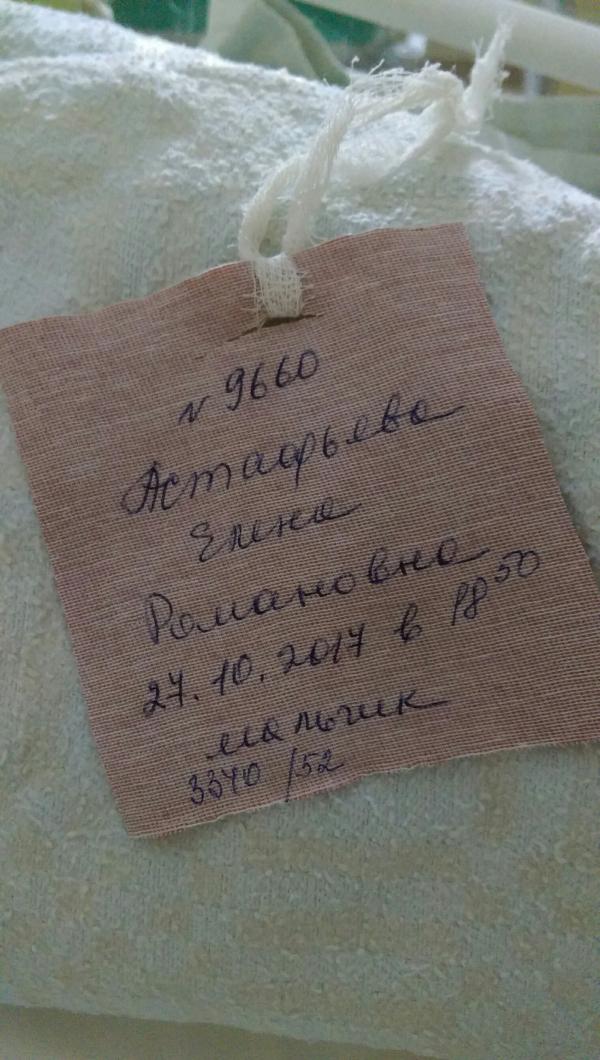 N 9660
Астафьева
Елена
Романовна
27.10.2017 в 18 50
мальчик
3340 /52